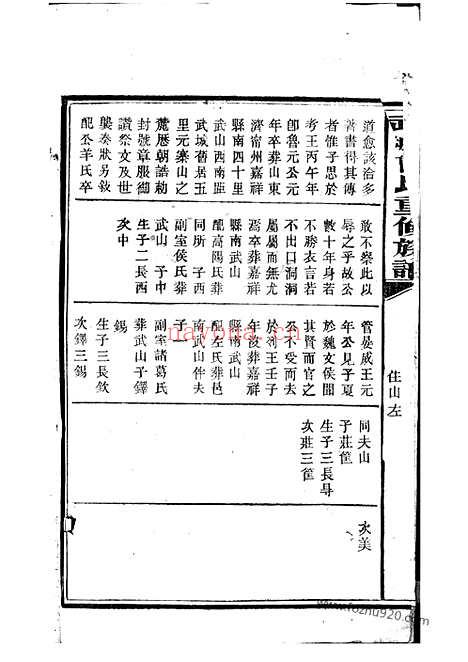 道愈該治多
著書得其傳
者惟子思於
考王丙午年
卽魯元公元
年卒葬山東
濟甯州嘉祥
縣南四十里
武山西南距
武城舊居五
里元寨山之
麓歷朝誥勅
封號章服御
讚祭文及世
襲奏狀另敘
配公羊氏卒
敢不察此以
辱之乎故公
數十年身若
不勝衣言若
不出口洞洞
屬屬而無尤
焉卒葬嘉祥
縣南武山
配高陽氏葬
同所 子西
副室侯氏葬
武山 子中
生子二長西
次中
管晏咸王元
年公見子夏
於魏文侯聞
其賢而官之
公不受而去
於 王壬子
年 葬嘉祥
縣南武山
配左氏葬邑
南武山伴夫
子
副室諸葛氏
葬武山子鐸
錫
生子三長欽
次鐸三錫
同夫山
子莊筐
生子三長㝵
次莊三筐
次美
重修族譜
住山左
nayona.cn
www.fozhu920.com